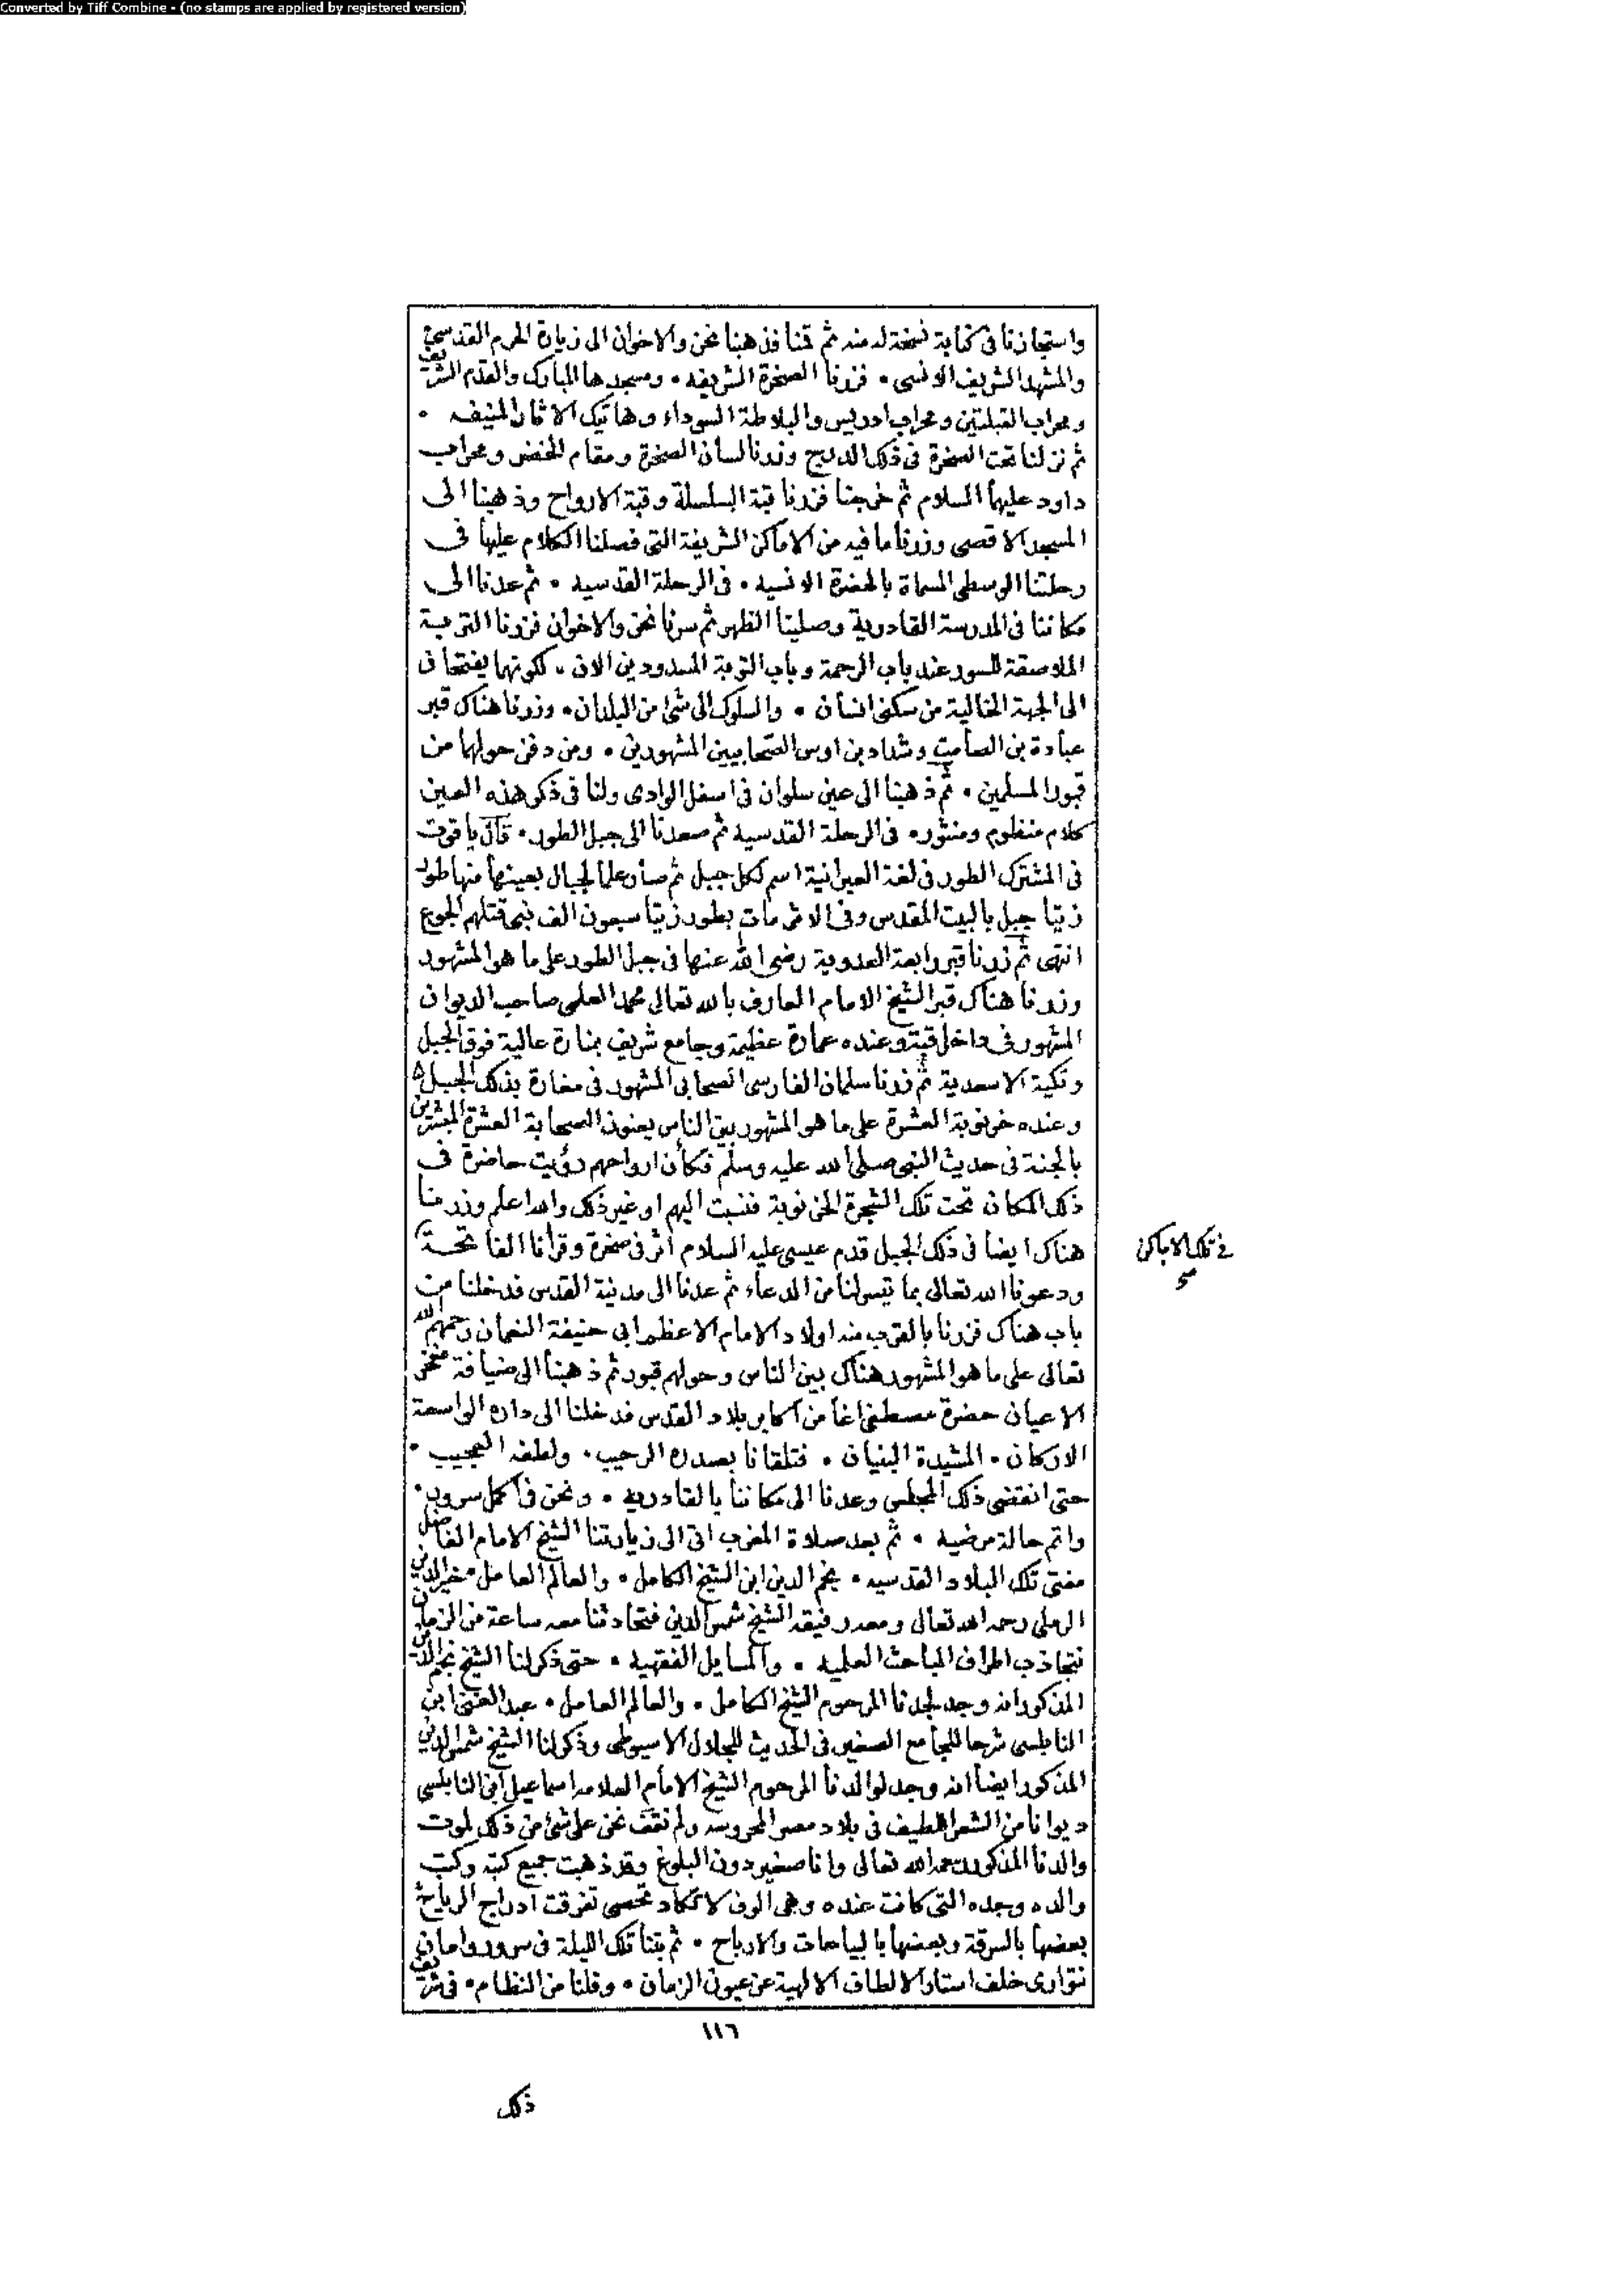 Converted by Tiff Combine - (no stamps are applied by registered version)
واستجازنا فى كتابة نسخة له منه ثم قمنا فذهبنا نحن والاخوان الى زيارة الحرم القدسى
والمشهد الشريف الانسى . فزرنا الصخرة الشريفه . ومسجدها المبارك والقدم الشريف
ومحراب القبلتين ومحراب ادريس والبلاطة السوداء وهاتيك الاثار المنيفه .
ثم نزلنا تحت الصخرة فى ذلك الدرج وزرنا لسان الصخرة ومقام الخضر ومحراب
داود عليهما السلام ثم خرجنا فزرنا قبة السلسلة وقبة الارواح وذهبنا الى
المسجد الاقصى وزرنا ما فيه من الاماكن الشريفة التى فصلنا الكلام عليها فى
رحلتنا الوسطى المسماة بالحضرة الانسيه . فى الرحلة القدسيه . ثم عدنا الى
مكاننا فى المدرسة القادرية وصلينا الظهر ثم سرنا نحن والاخوان فزرنا التربة
الملاصقة للسور عند باب الرحمة وباب التوبة المسدودين الان . لكونهما يفتحان
الى الجهة الخالية من سكنى انسان . والسلوك الى شئ من البلدان . وزرنا هناك قبر
عبادة بن الصامت وشداد بن اوس الصحابيين المشهورين . ومن دفن حولهما من
قبور المسلمين . ثم ذهبنا الى عين سلوان فى اسفل الوادى ولنا فى ذكر هذه العين
كلام منظوم ومنثور . فى الرحلة القدسية ثم صعدنا الى جبل الطور . قال ياقوت
فى المشترك الطور فى لغة العبرانية اسم لكل جبل ثم صار علما لجبال بعينها منها طور
زيتا جبل بالبيت المقدس وفى الاثر مات بطور زيتا سبعون الف نبى قتلهم الجوع
انتهى ثم زرنا قبر رابعة العدوية رضى الله عنها فى جبل الطور على ما هو المشهور
وزرنا هناك قبر الشيخ الامام العارف بالله تعالى محمد العلمى صاحب الديوان
المشهور فى داخل قبة وعنده عمارة عظيمة وجامع شريف بمنارة عالية فوق الجبل
وتكية الاسعدية ثم زرنا سلمان الفارسى الصحابى المشهور فى مغارة بذلك الجبل
وعنده خرنوبة العشرة على ما هو المشهور بين الناس يعنون الصحابة العشرة المبشرين
بالجنة فى حديث النبى صلى الله عليه وسلم فكأن ارواحهم رؤيت حاضرة فى
ذلك المكان تحت تلك الشجرة الخرنوبة فنسبت اليهم او غير ذلك والله اعلم وزرنا
هناك ايضا فى ذلك الجبل قدم عيسى عليه السلام اثر فى صخرة وقرأنا الفاتحة
فى تلك الاماكن
صح
ودعونا الله تعالى بما تيسر لنا من الدعاء ثم عدنا الى مدينة القدس فدخلنا من
باب هناك فزرنا بالقرب منه اولاد الامام الاعظم ابى حنيفة النعمان رحمهم الله
تعالى على ما هو المشهور هناك بين الناس وحولهم قبور ثم ذهبنا الى ضيافة فخر
الاعيان حضرة مصطفى اغا من اكابر بلاد القدس فدخلنا الى داره الواسعة
الاركان . المشيدة البنيان . فتلقانا بصدره الرحيب . ولطفه العجيب .
حتى انقضى ذلك المجلس وعدنا الى مكاننا بالقادريه . ونحن فى اكمل سرور .
واتم حالة مرضيه . ثم بعد صلاة المغرب اتى الى زيارتنا الشيخ الامام الفاضل
مفتى تلك البلاد القدسيه . نجم الدين ابن الشيخ الكامل . والعالم العامل . خير الدين
الرملى رحمه الله تعالى ومعه رفيقه الشيخ شمس الدين فتحادثنا معه ساعة من الزمان
نتجاذب اطراف المباحث العلميه . والمسايل الفقهيه . حتى ذكر لنا الشيخ نجم الدين
المذكور انه وجد لجدنا المرحوم الشيخ الكامل . والعالم العامل . عبد الغنى ابن
النابلسى شرحا للجامع الصغير فى الحديث للجلال الاسيوطى وذكر لنا الشيخ شمس الدين
المذكور ايضا انه وجد لوالدنا المرحوم الشيخ الامام العلامه اسماعيل ابن النابلسى
ديوانا من الشعر اللطيف فى بلاد مصر المحروسه ولم نقف نحن على شئ من ذلك لموت
والدنا المذكور رحمه الله تعالى وانا صغير دون البلوغ وقد ذهبت جميع كتبه وكتب
والده وجده التى كانت عنده وهى الوف لا تكاد تحصى تفرقت ادراج الرياح
بعضها بالسرقة وبعضها بالبياعات والارباح . ثم بتنا تلك الليلة فى سرور وامان
نتوارى خلف استار الالطاف الالهية عن عيون الزمان . وقلنا من النظام . فى شريف
١١٦
ذلك